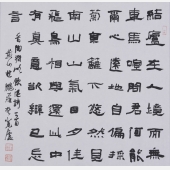 結廬在人境而無
車馬喧問君何能
爾心遠地自偏采
菊東籬下悠然見
南山山氣日夕佳
飛鳥相與還此中
有真意欲辨已忘
言